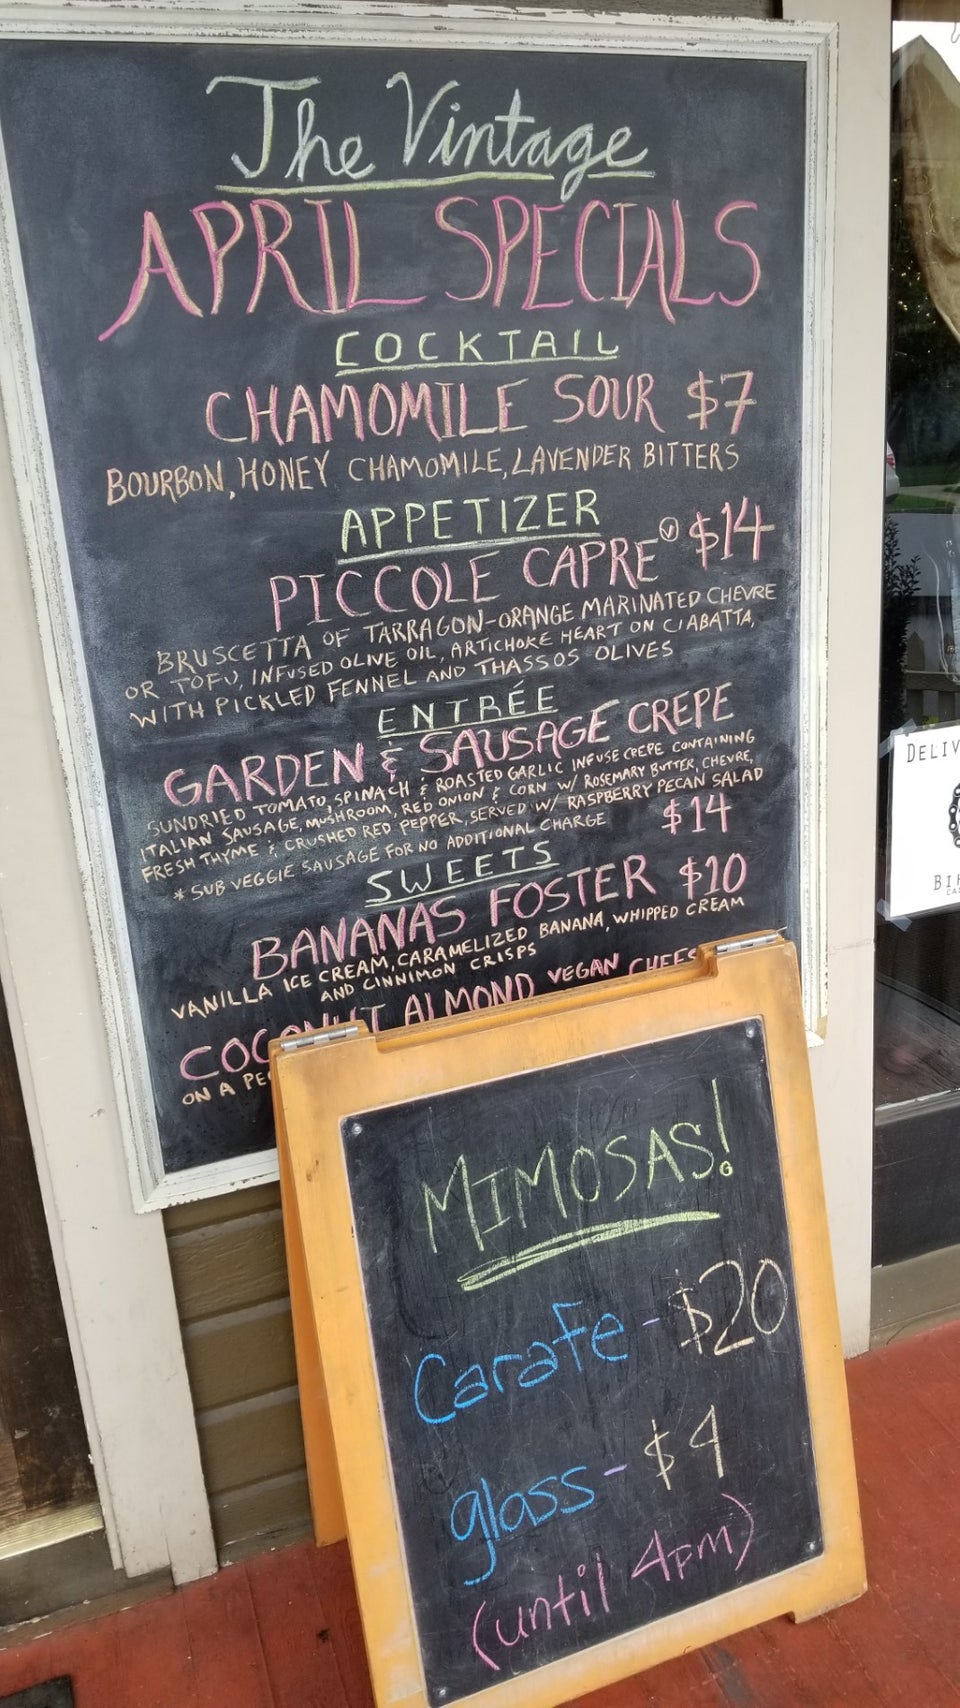 The Vintage
APRIL SPECIALS
COCKTAIL
CHAMOMILE SOUR $7
BOURBON, HONEY CHAMOMILE, LAVENDER BITTERS
APPETIZER
PICCOLE CAPRE Ⓥ $14
BRUSCETTA OF TARRAGON-ORANGE MARINATED CHEVRE
OR TOFU, INFUSED OLIVE OIL, ARTICHOKE HEART ON CIABATTA,
WITH PICKLED FENNEL AND THASSOS OLIVES
ENTRÉE
GARDEN & SAUSAGE CREPE
SUNDRIED TOMATO, SPINACH & ROASTED GARLIC INFUSE CREPE CONTAINING
ITALIAN SAUSAGE, MUSHROOM, RED ONION & CORN W/ ROSEMARY BUTTER, CHEVRE,
FRESH THYME & CRUSHED RED PEPPER, SERVED W/ RASPBERRY PECAN SALAD
* SUB VEGGIE SAUSAGE FOR NO ADDITIONAL CHARGE $14
SWEETS
BANANAS FOSTER $10
VANILLA ICE CREAM, CARAMELIZED BANANA, WHIPPED CREAM
AND CINNIMON CRISPS
COCONUT ALMOND VEGAN CHEES
ON A PE
MIMOSAS!
Carafe - $20
glass - $4
(until 4pm)
DELIV
BI